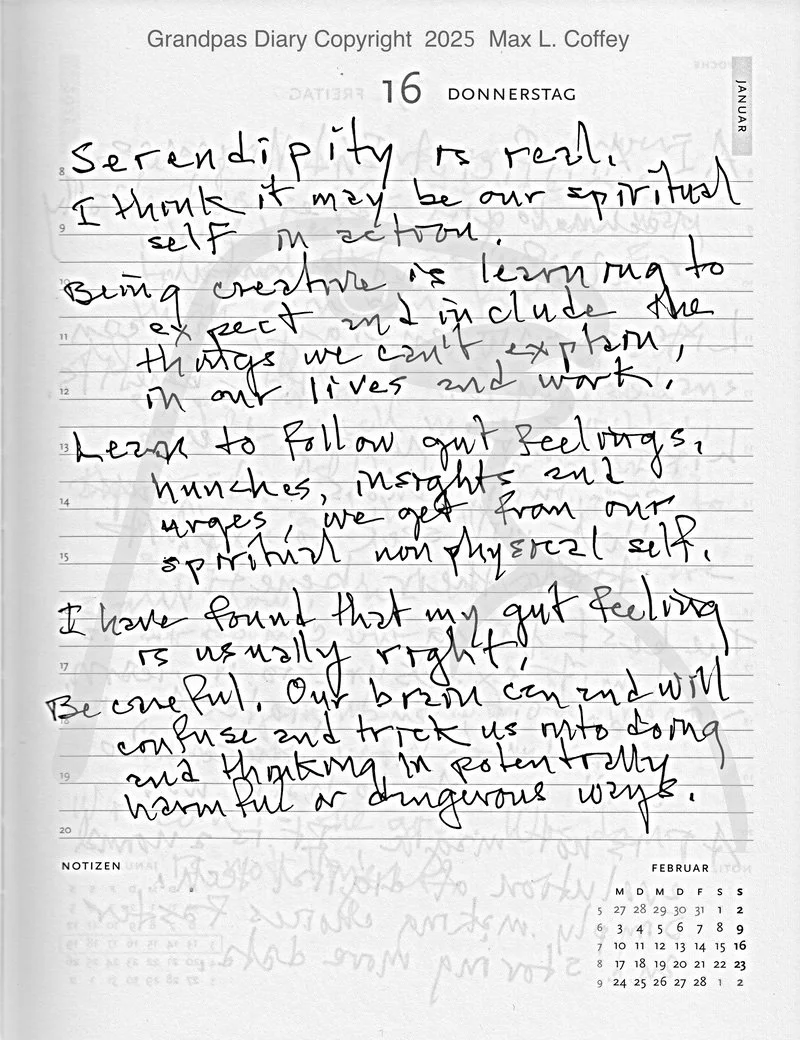 Grandpas Diary Copyright 2025 Max L. Coffey
16 DONNERSTAG
JANUAR
Serendipity is real.
I think it may be our spiritual
self in action.
Being creative is learning to
expect and include the
things we can't explain,
in our lives and work.
Learn to follow gut feelings,
hunches, insights and
urges, we get from our
spiritual non physical self.
I have found that my gut feeling
is usually right,
Be careful. Our brain can and will
confuse and trick us into doing
and thinking in potentially
harmful or dangerous ways.
8
9
10
11
12
13
14
15
16
17
18
19
20
NOTIZEN
FEBRUAR
M D M D F S S
5 27 28 29 30 31 1 2
6 3 4 5 6 7 8 9
7 10 11 12 13 14 15 16
8 17 18 19 20 21 22 23
9 24 25 26 27 28 1 2